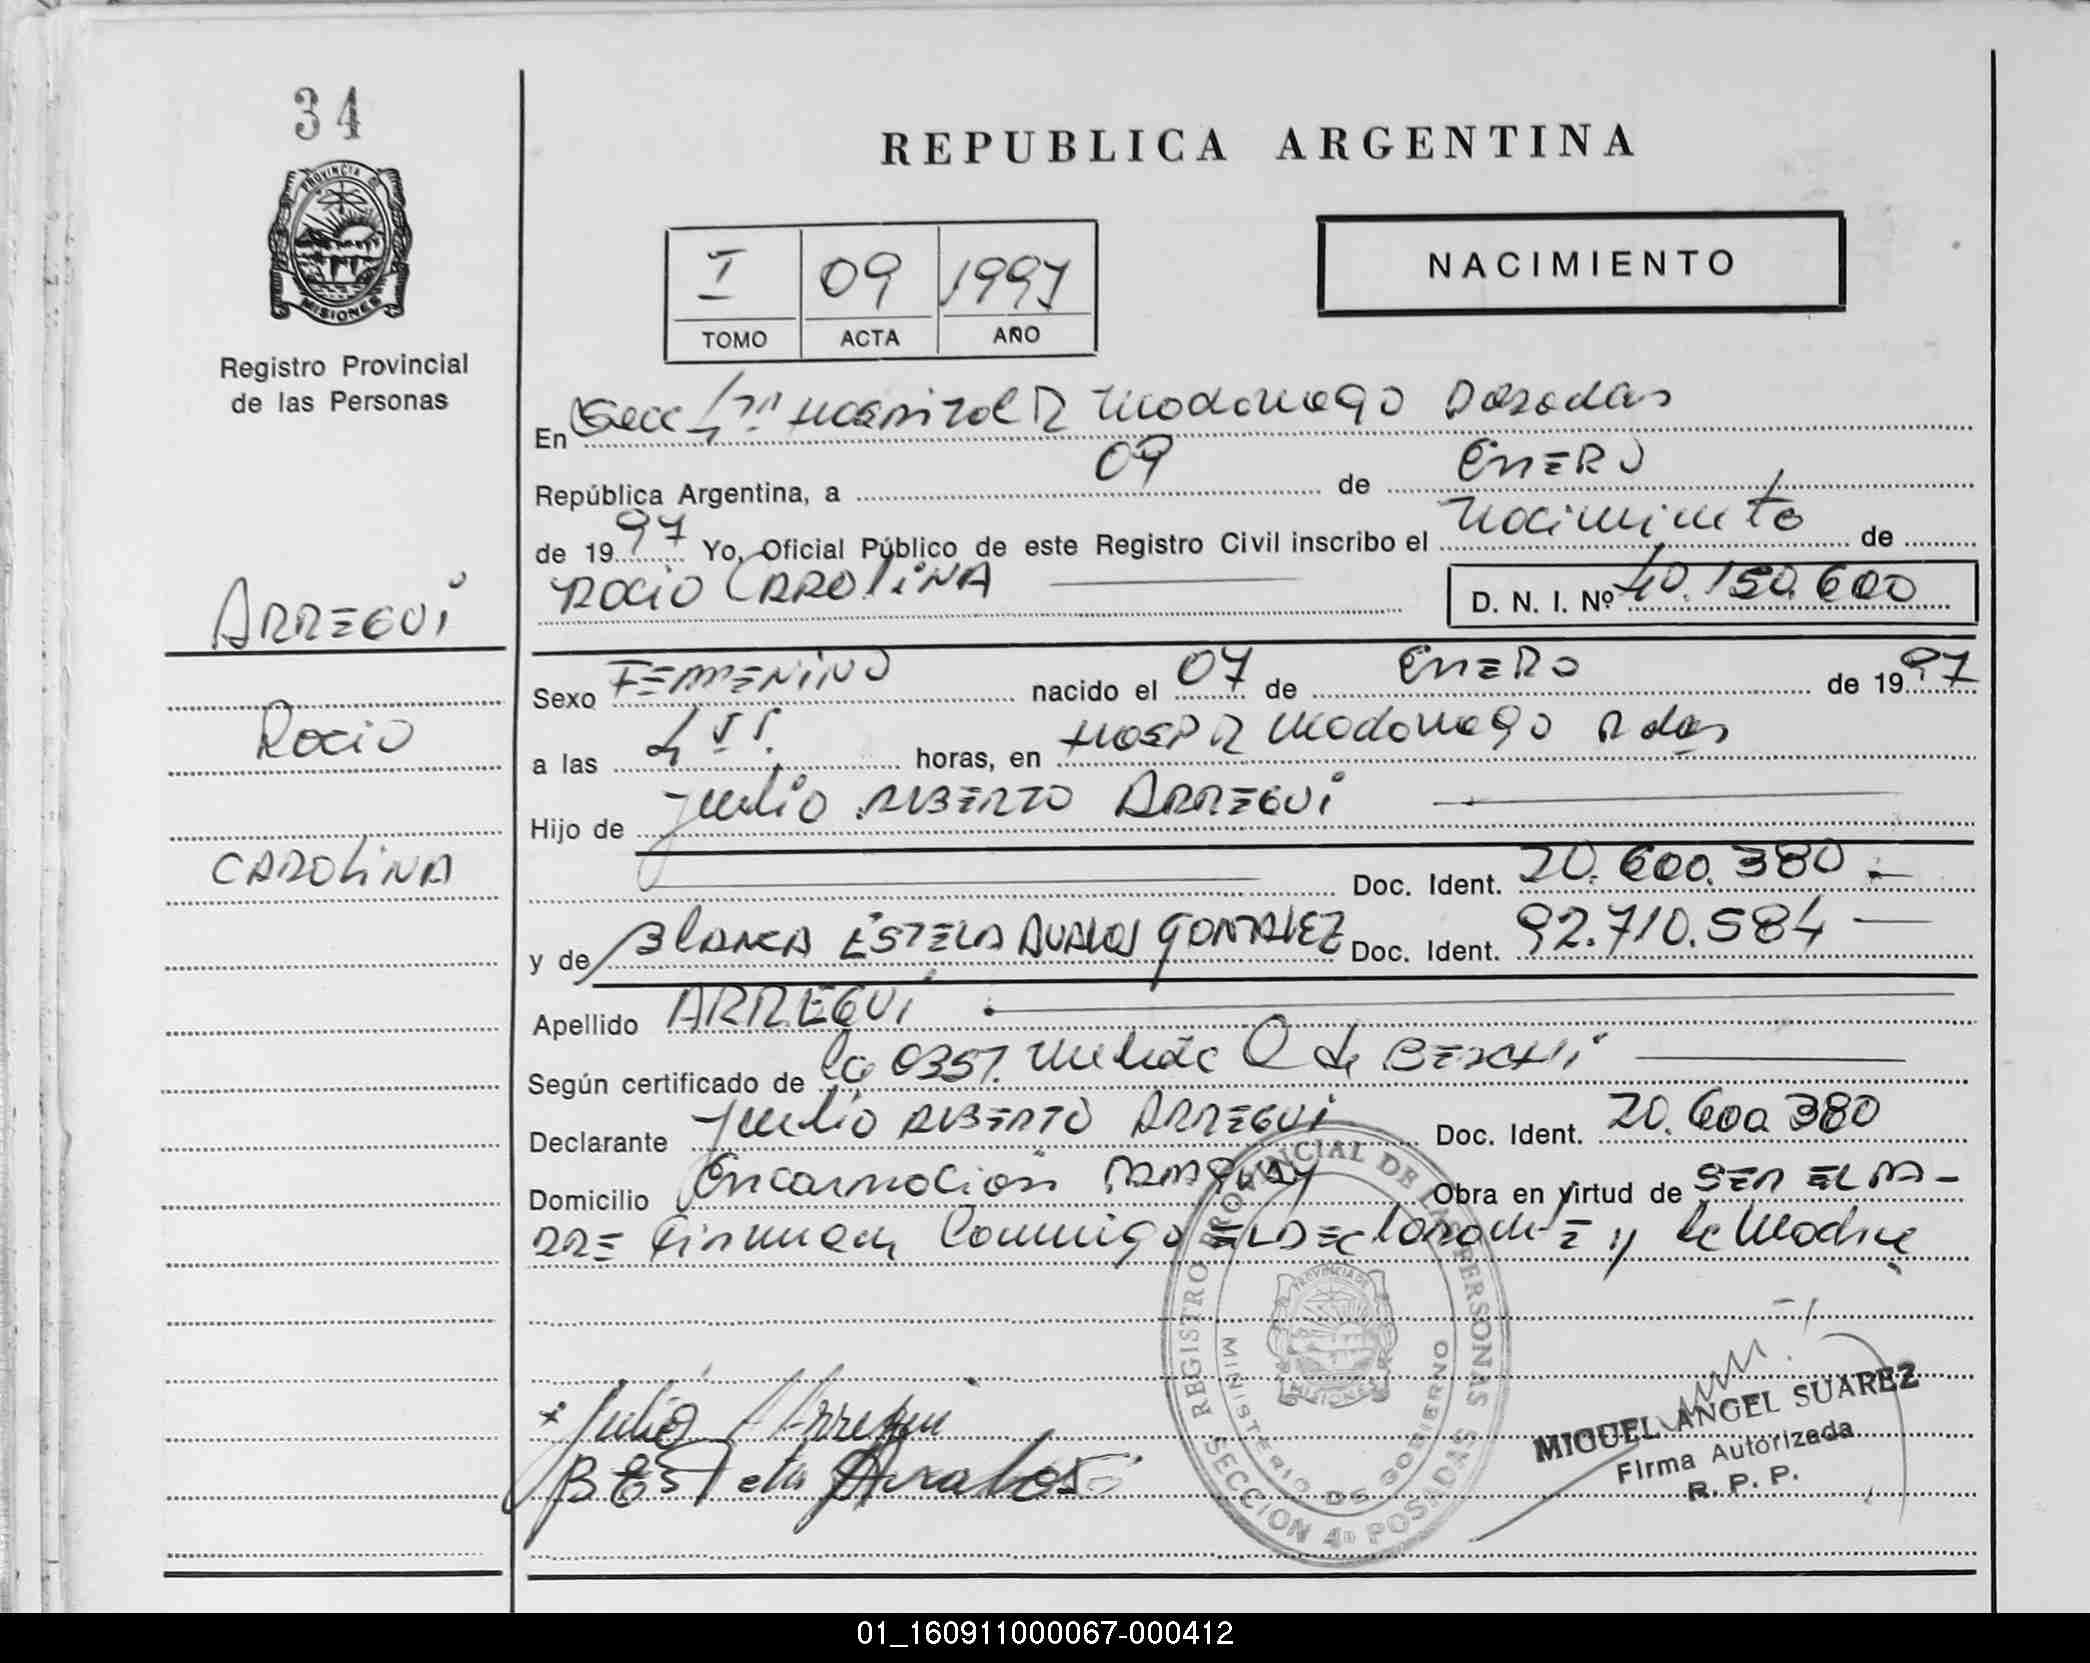 34
PROVINCIA DE
MISIONES
Registro Provincial
de las Personas
REPUBLICA ARGENTINA
NACIMIENTO
I 09 1997
TOMO ACTA AÑO
En Secc 4ta Hospital R Madariaga Posadas
República Argentina, a 09 de ENERO
de 1997 Yo, Oficial Público de este Registro Civil inscribo el Nacimiento de
ROCIO CAROLINA
D. N. I. Nº 40.150.600
ARREGUI
Rocio
CAROLINA
Sexo FEMENINO nacido el 07 de ENERO de 1997
a las horas, en HOSP R Madariaga Pdas
Hijo de Julio ALBERTO ARREGUI
Doc. Ident. 20.600.380.-
y de BLANCA ESTELA AVALOS GONZALEZ Doc. Ident. 92.710.584
Apellido ARREGUI
Según certificado de la OBST. Q de
Declarante Julio ALBERTO ARREGUI Doc. Ident. 20.600.380
Domicilio Encarnación PARAGUAY Obra en virtud de SER EL PA-
DRE Firman Conmigo EL DEClaranTE y la Madre
Julio A Arregui
B Estela Avalos
REGISTRO PROVINCIAL DE LAS PERSONAS
MINISTERIO DE GOBIERNO
PROVINCIA DE
MISIONES
SECCION 4ta POSADAS
MIGUEL ANGEL SUAREZ
Firma Autorizada
R. P. P.
01_160911000067-000412